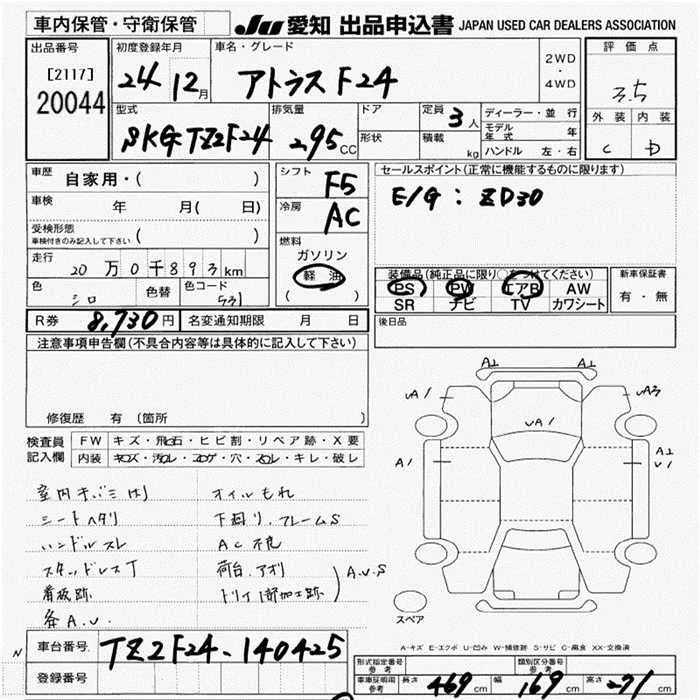 車内保管・守衛保管
JU 愛知 出品申込書 JAPAN USED CAR DEALERS ASSOCIATION
出品番号 初度登録年月 車名・グレード 評価点
[2117]
20044
24 12月 アトラス F24 2WD・4WD 3.5
型式 排気量 ドア 定員 3人 ディーラー・並行 外装 内装
モデル年式 年
SKG-TZ2F24 2.95CC 形状 積載 kg ハンドル 左・右 C D
車歴 自家用・( ) シフト F5 セールスポイント(正常に機能するものに限ります)
車検 年 月(日) 冷房 AC E/G : ZD30
受検形態 ( )
車検付きのみ記入して下さい
燃料
ガソリン
走行 20万0千893km 軽油 装備品(純正品に限り○をつけてください) 新車保証書
色 シロ 色替 色コード 531 ( ) PS PW エアB AW 有・無
SR ナビ TV カワシート
R券 8,730円 名変通知期限 月 日 後日品
注意事項申告欄(不具合内容等は具体的に記入して下さい)
修復歴 有(箇所 )
検査員 FW キズ・飛石・ヒビ割・リペア跡・X要
記入欄 内装 キロズ・汚れ・コゲ・穴・スレ・キレ・破レ
シートヘタリ 下回リ.フレームS
ハンドルスレ AC不良
スタッドレスT 荷台.アオリ
看板跡
オイルもれ
A.U.S
A⊥ A⊥
uA1 uA3
uA1
A1 A⊥
U1
スペア
A-キズ E-エクボ U-凹み W-補修跡 S-サビ C-腐食 XX-交換済
車台番号 TZ2F24-140425
登録番号 形式指定番号 参考 類別区分番号 参考
車庫証明用 参考 長さ 469cm 幅 169cm 高さ 271cm